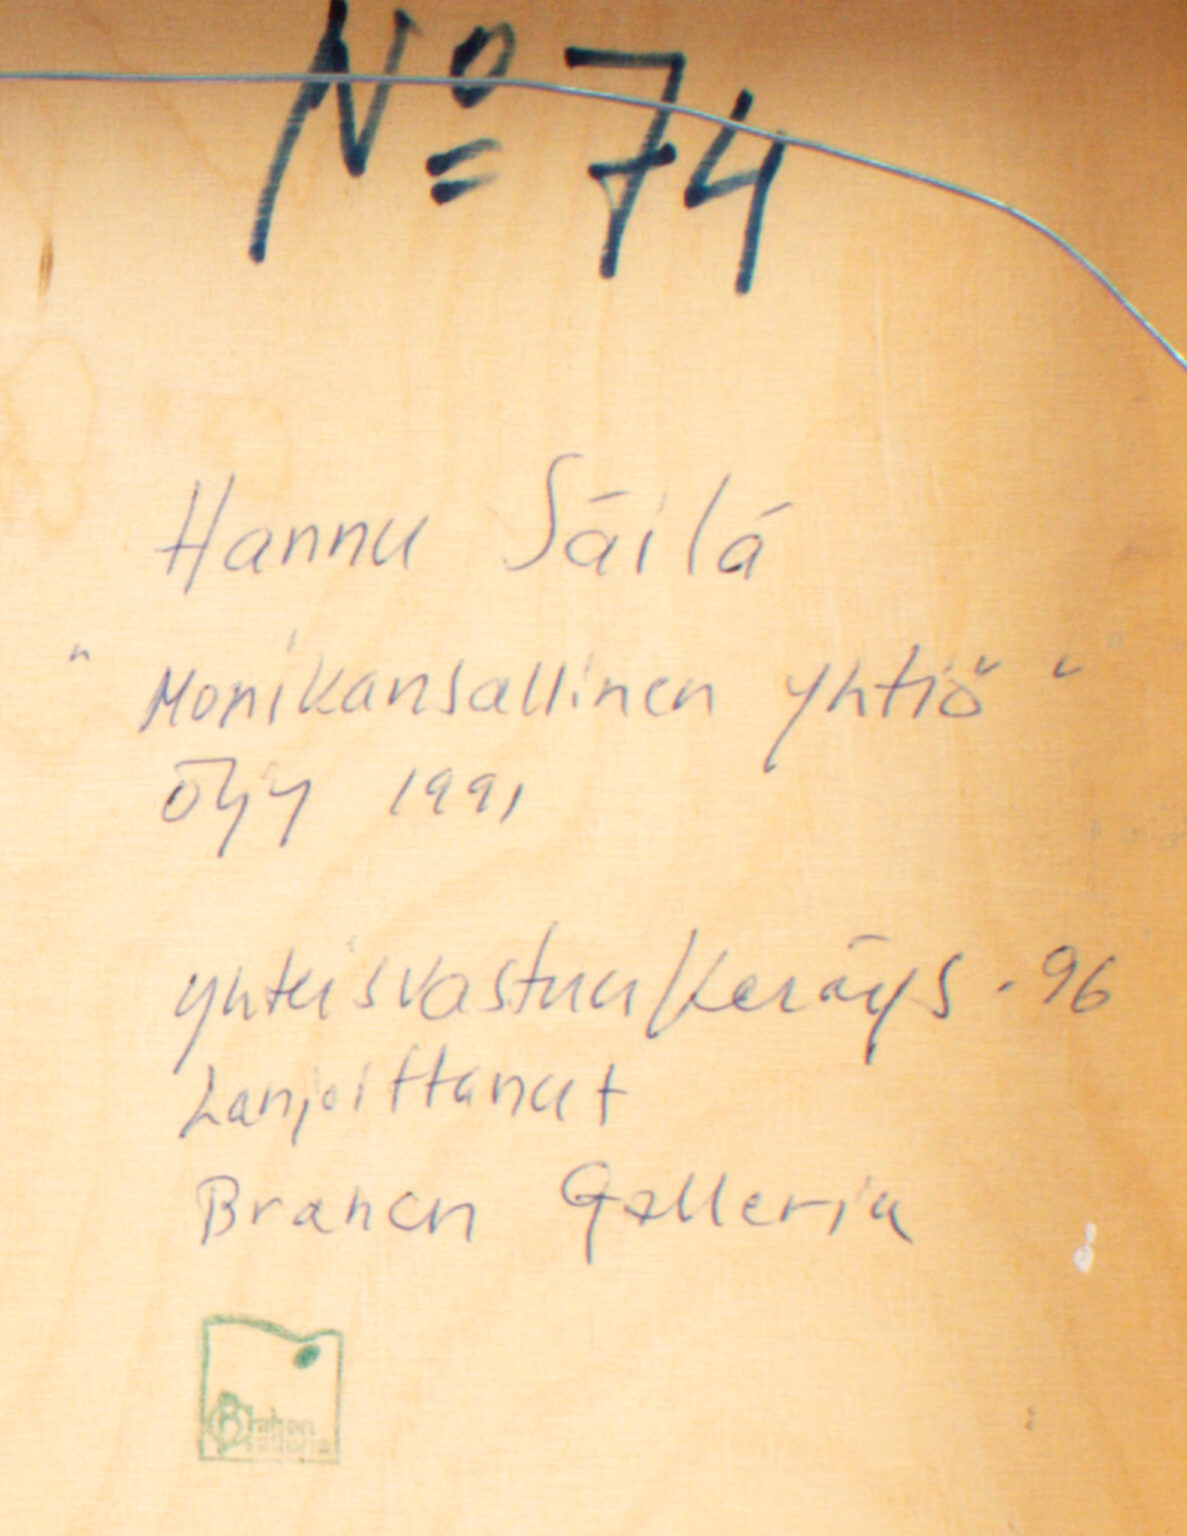 Nº 74
Hannu Säilä
"Monikansallinen yhtiö"
Öljy 1991
yhteisvastuu/keräys -96
Lahjoittanut
Brahen Galleria
Brahen
Galleria